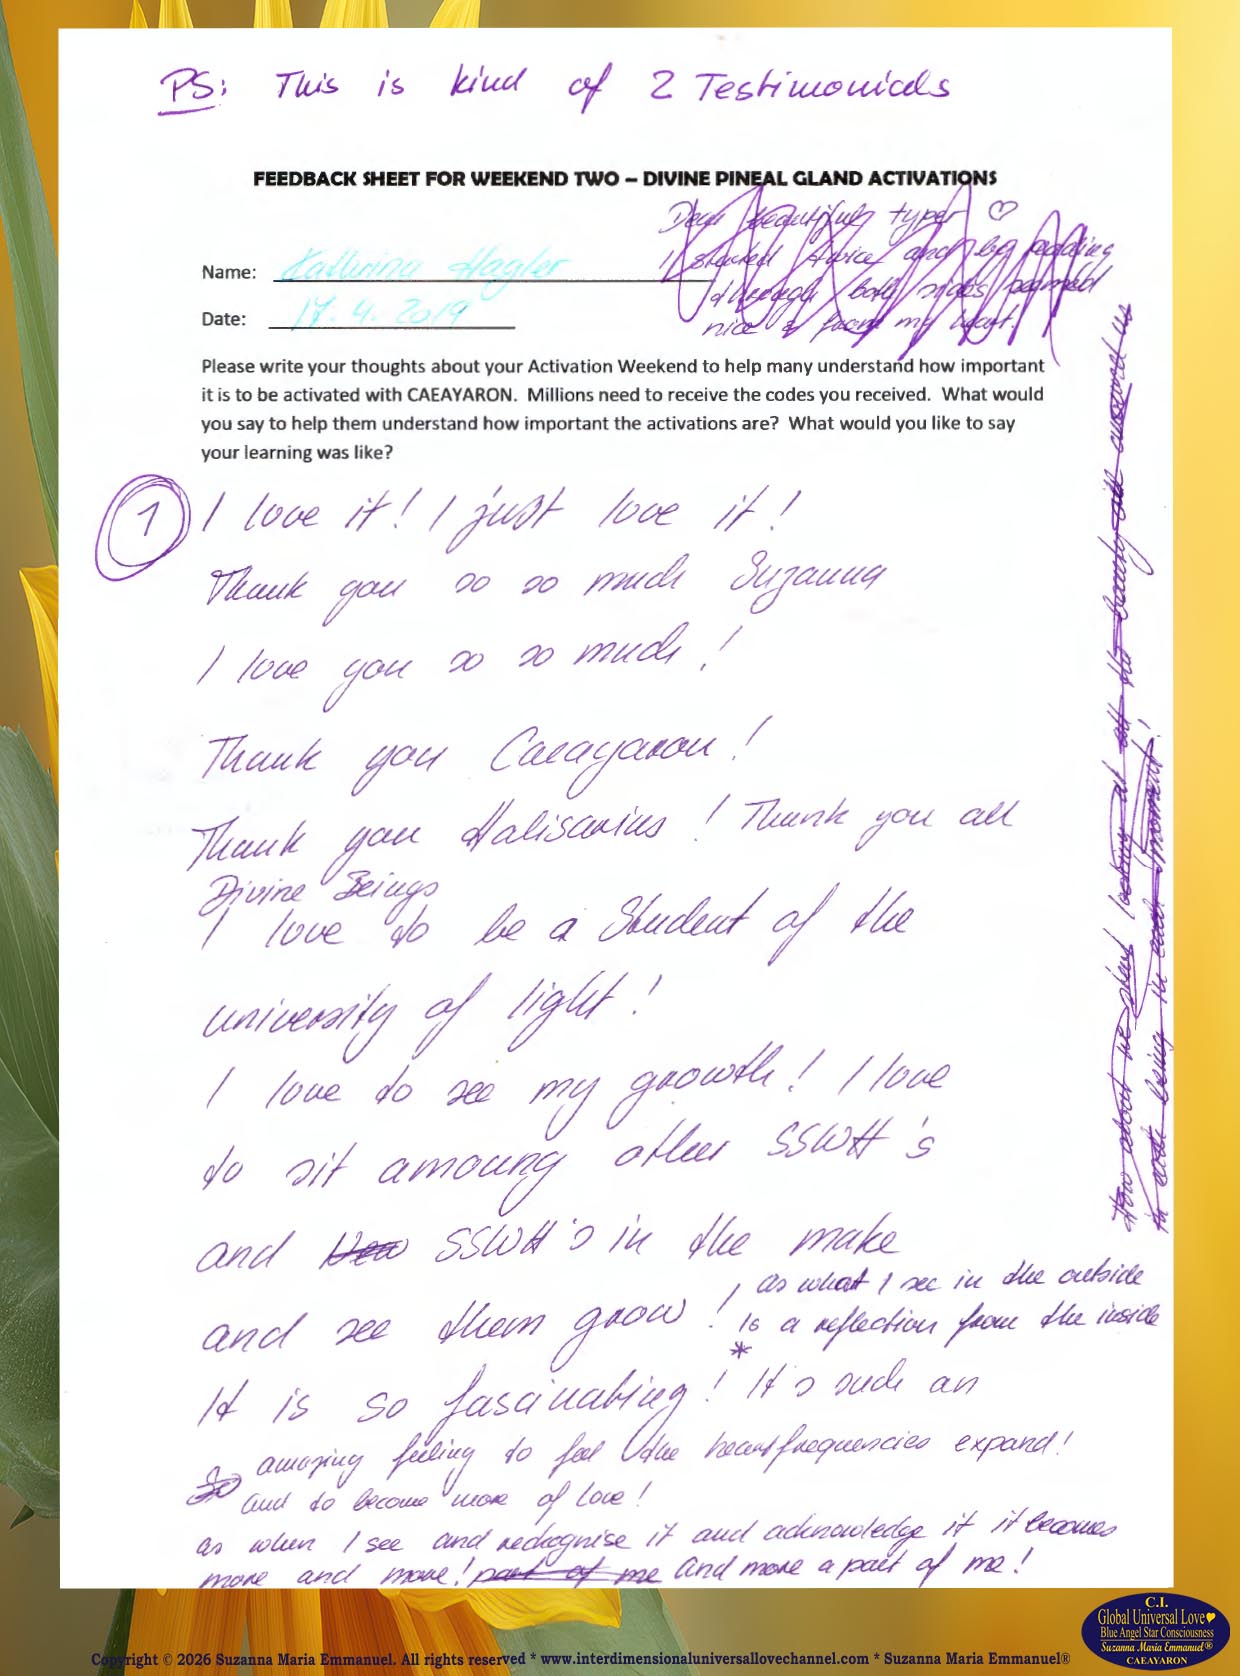 PS: This is kind of 2 Testimonials
FEEDBACK SHEET FOR WEEKEND TWO – DIVINE PINEAL GLAND ACTIVATIONS
Dear beautiful typer ♡
I started twice and by reading
through both sides seemed
nice & from my heart.
Name: Kathrina Hagler
Date: 17.4.2019
Please write your thoughts about your Activation Weekend to help many understand how important
it is to be activated with CAEAYARON. Millions need to receive the codes you received. What would
you say to help them understand how important the activations are? What would you like to say
your learning was like?
1 I love it! I just love it!
Thank you so so much Suzanna
I love you so so much!
Thank you Caeayaron!
Thank you Halisarius! Thank you all
Divine Beings
I love to be a Student of the
university of light!
I love to see my growth! I love
to sit amoung other SSWH's
and SSWH's in the make
and see them grow! as what I see in the outside
is a reflection from the inside
*
It is so fascinating! It's such an
amazing feeling to feel the heartfrequencies expand!
So and to become more of Love!
as when I see and rechognise it and acknowledge it it becomes
more and more! part of me and more a part of me!
How about we start looking at all the beauty
in each moment!
C.I.
Global Universal Love
Blue Angel Star Consciousness
Suzanna Maria Emmanuel®
CAEAYARON
Copyright © 2026 Suzanna Maria Emmanuel. All rights reserved * www.interdimensionaluniversallovechannel.com * Suzanna Maria Emmanuel®